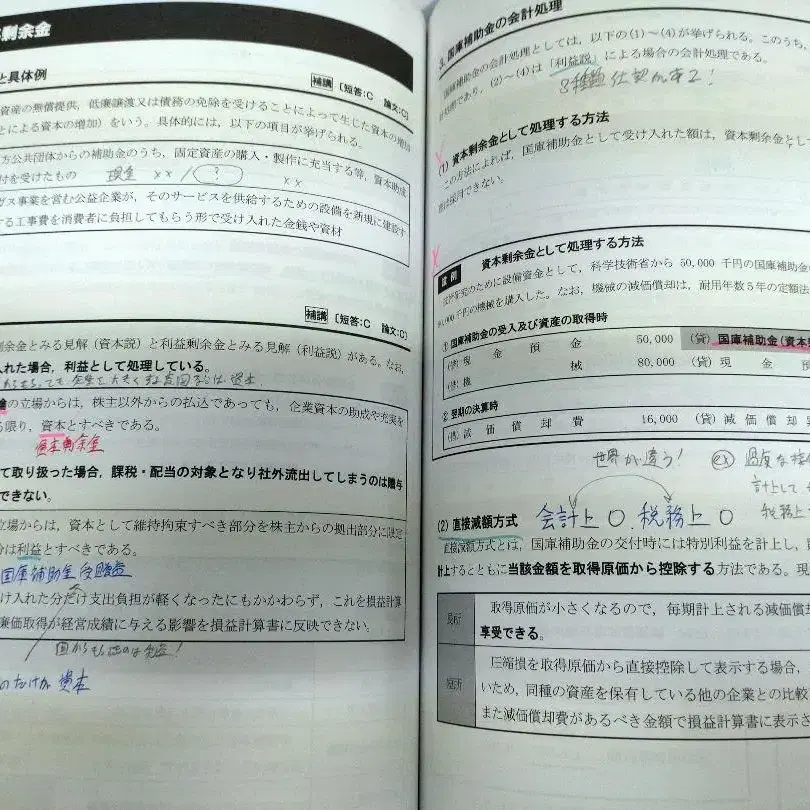 剰余金
と具体例
補講 〔短答：C 論文：C〕
資産の無償提供，低廉譲渡又は債務の免除を受けることによって生じた資本の増加
とによる資本の増加）をいう。具体的には，以下の項目が挙げられる。
方公共団体からの補助金のうち，固定資産の購入・製作に充当する等，資本助成
付を受けたもの 現金 ×× / ( ? ) ××
ガス事業を営む公益企業が，そのサービスを供給するための設備を新規に建設す
する工事費を消費者に負担してもらう形で受け入れた金銭や資材
補講 〔短答：C 論文：C〕
剰余金とみる見解（資本説）と利益剰余金とみる見解（利益説）がある。なお，
入れた場合，利益として処理している。
論の立場からは，株主以外からの払込であっても，企業資本の助成や充実を
る限り，資本とすべきである。
資本剰余金
て取り扱った場合，課税・配当の対象となり社外流出してしまうのは贈与
できない。
立場からは，資本として維持拘束すべき部分を株主からの拠出部分に限定
分は利益とすべきである。
国庫補助金受贈益
け入れた分だけ支出負担が軽くなったにもかかわらず，これを損益計算
廉価取得が経営成績に与える影響を損益計算書に反映できない。
のだけが 資本
3. 国庫補助金の会計処理
国庫補助金の会計処理としては，以下の(1)～(4)が挙げられる。このうち，
であり，(2)～(4)は「利益説」による場合の会計処理である。
3種類 仕訳が本2！
(1) 資本剰余金として処理する方法
この方法によれば，国庫補助金として受け入れた額は，資本剰余金として
は採用できない。
設例 資本剰余金として処理する方法
研究のために設備資金として，科学技術省から 50,000 千円の国庫補助金の
80,000 千円の機械を購入した。なお，機械の減価償却は，耐用年数5年の定額法
① 国庫補助金の受入及び資産の取得時
(借) 現 金 預 金 50,000 (貸) 国庫補助金(資本
(借) 機 械 80,000 (貸) 現 金 預
② 翌期の決算時
(借) 減 価 償 却 費 16,000 (貸) 減 価 償 却 累
世界が違う！ ex 過度な
計上して
(2) 直接減額方式 会計上 ○ 税務上 ○ 税務上
直接減額方式とは，国庫補助金の交付時には特別利益を計上し，
計上するとともに当該金額を取得原価から控除する方法である。現
長所 取得原価が小さくなるので，毎期計上される減価償却
享受できる。
短所 圧縮損を取得原価から直接控除して表示する場合，
いため，同種の資産を保有している他の企業との比較
また減価償却費があるべき金額で損益計算書に表示さ